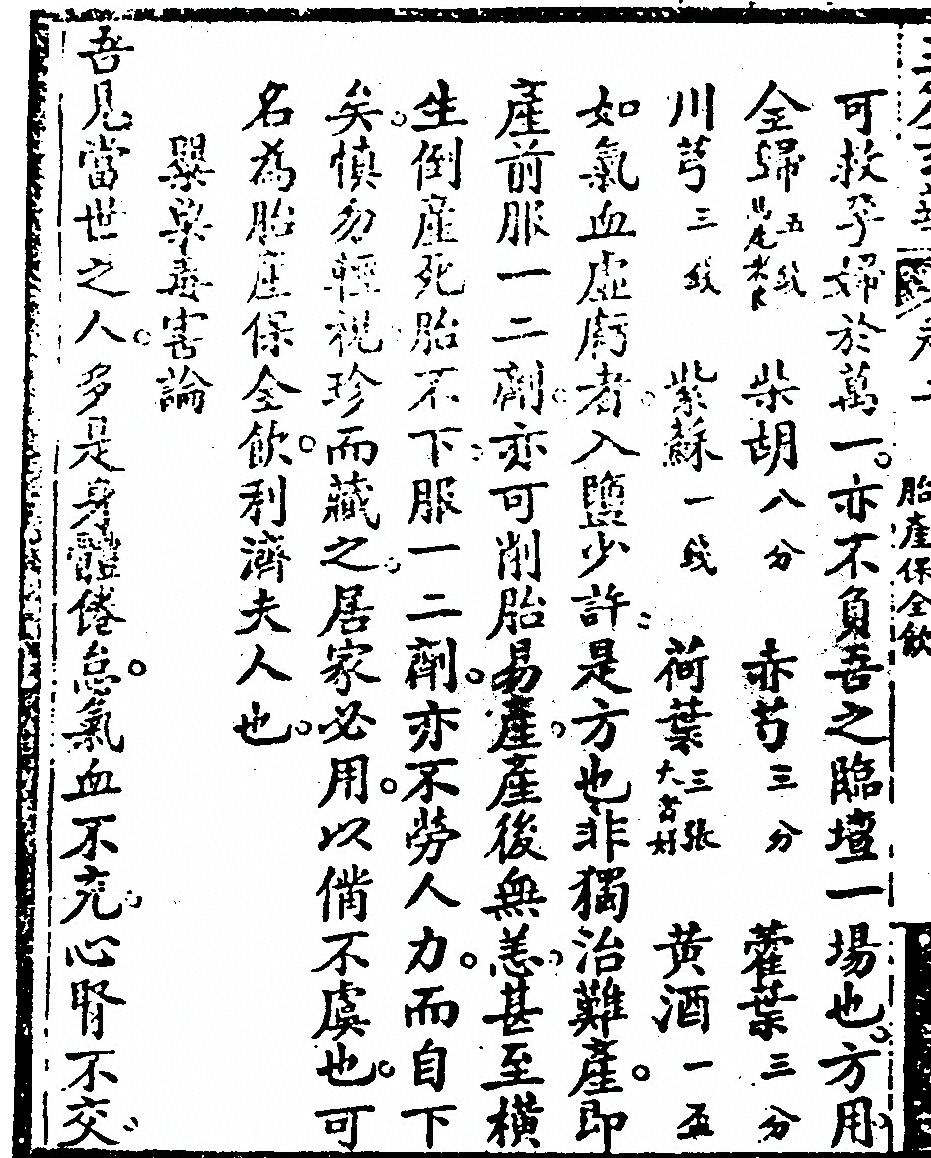 胎產保全飲
可救孕婦於萬一亦不負吾之臨壇一場也方用
全歸五錢 柴胡八分 赤芍三分 藿葉三分
川芎三錢 紫蘇一錢 荷葉三張 黃酒一盃
如氣血虛虧者入鹽少許是方也非獨治難產即
產前服一二劑亦可削胎易產產後無恙甚至橫
生倒產死胎不下服一二劑亦不勞人力而自下
矣慎勿輕視珍而藏之居家必用以備不虞也可
名為胎產保全飲利濟夫人也
罌粟毒害論
吾見當世之人多是身體倦怠氣血不充心腎不交